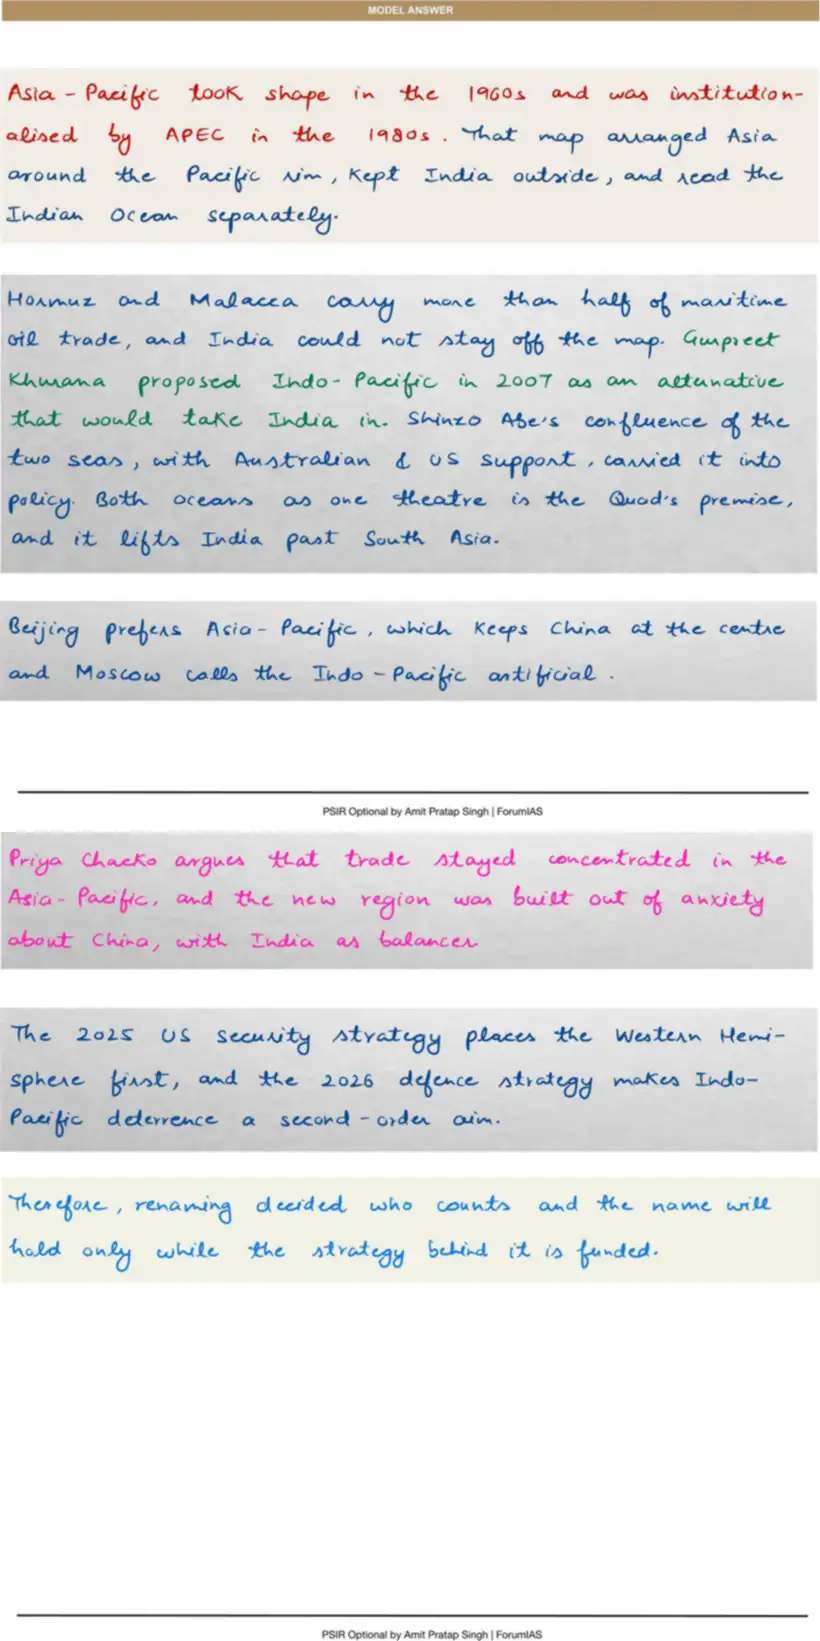 MODEL ANSWER
Asia - Pacific took shape in the 1960s and was institution-
alised by APEC in the 1980s. That map arranged Asia
around the Pacific rim, kept India outside, and read the
Indian Ocean separately.
Hormuz and Malacca carry more than half of maritime
oil trade, and India could not stay off the map. Gurpreet
Khurana proposed Indo-Pacific in 2007 as an alternative
that would take India in. Shinzo Abe's confluence of the
two seas, with Australian & US support, carried it into
policy. Both oceans as one theatre is the Quad's premise,
and it lifts India past South Asia.
Beijing prefers Asia-Pacific, which keeps China at the centre
and Moscow calls the Indo-Pacific artificial.
PSIR Optional by Amit Pratap Singh | ForumIAS
Priya Chacko argues that trade stayed concentrated in the
Asia-Pacific, and the new region was built out of anxiety
about China, with India as balancer
The 2025 US security strategy places the Western Hemi-
sphere first, and the 2026 defence strategy makes Indo-
Pacific deterrence a second-order aim.
Therefore, renaming decided who counts and the name will
hold only while the strategy behind it is funded.
PSIR Optional by Amit Pratap Singh | ForumIAS